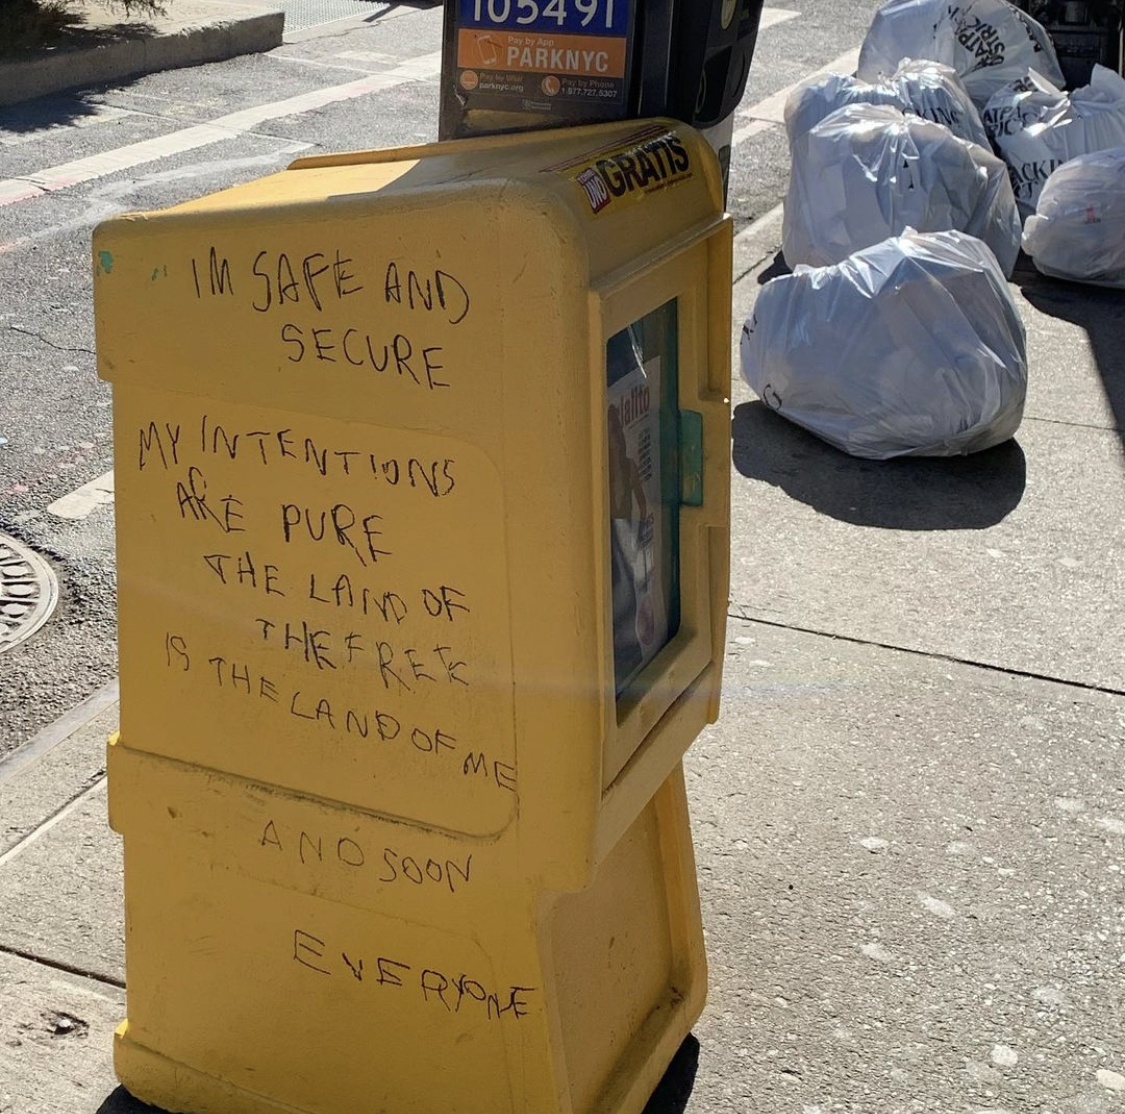 105491
Pay by App
PARKNYC
Pay by Web
parknyc.org
Pay by Phone
1.877.727.5307
UNO
GRATIS
IM SAFE AND
SECURE
MY INTENTIONS
ARE PURE
THE LAND OF
THE FREE
IS THE LAND OF ME
AND SOON
EVERYONE